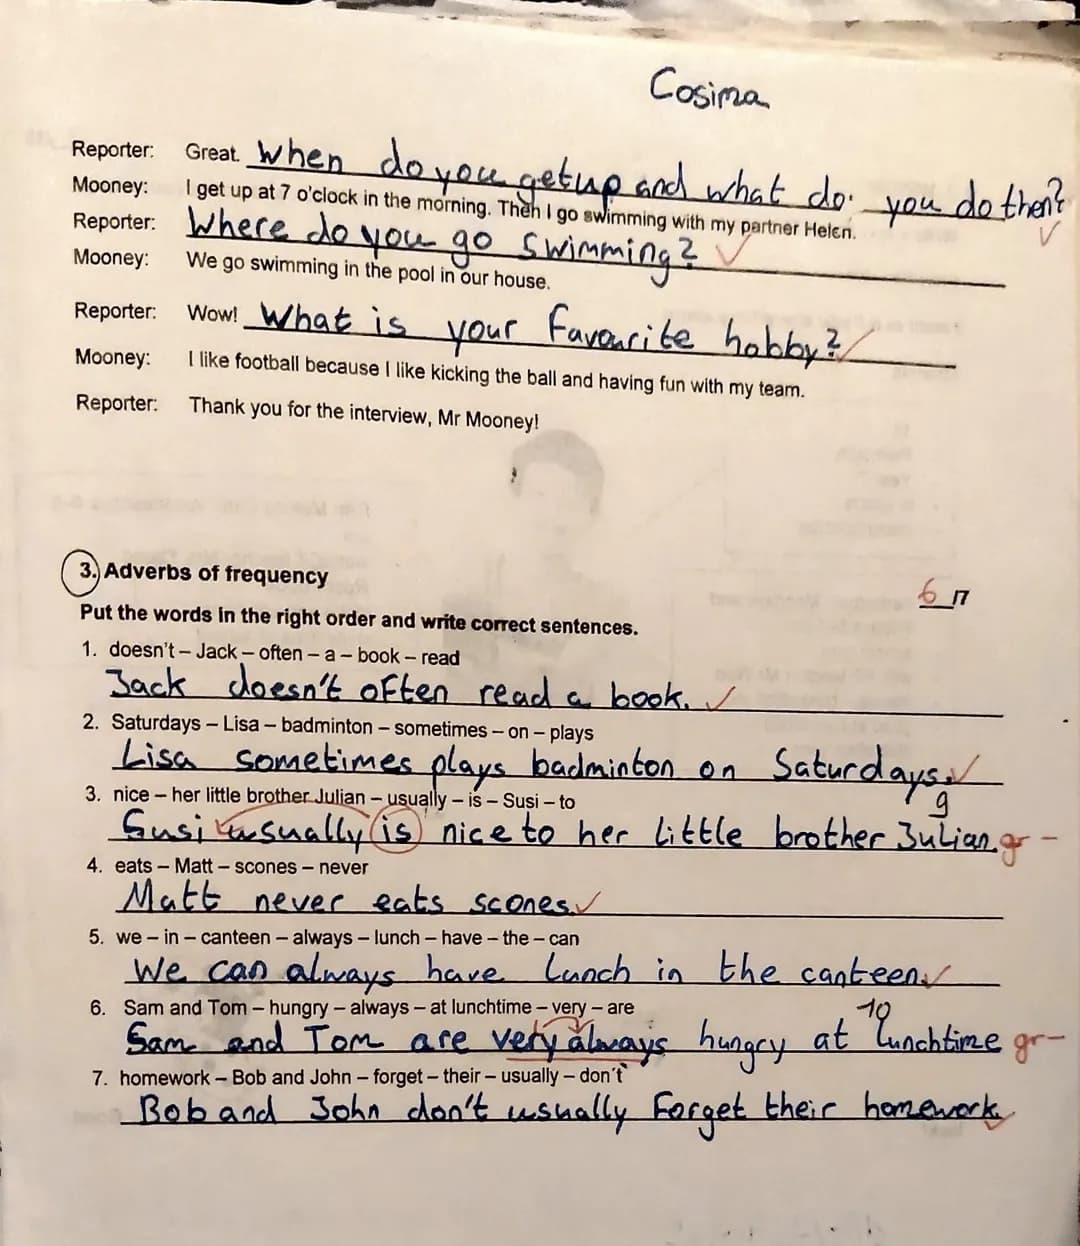 Cosima
Reporter: Great. When do you get up and what do you do then?
Mooney: I get up at 7 o'clock in the morning. Then I go swimming with my partner Helen.
Reporter: Where do you go swimming? ✓
Mooney: We go swimming in the pool in our house.
Reporter: Wow! What is your favourite hobby? ✓
Mooney: I like football because I like kicking the ball and having fun with my team.
Reporter: Thank you for the interview, Mr Mooney!
3. Adverbs of frequency
6 /7
Put the words in the right order and write correct sentences.
1. doesn't – Jack – often – a – book – read
Jack doesn't often read a book. ✓
2. Saturdays – Lisa – badminton – sometimes – on – plays
Lisa sometimes plays badminton on Saturdays. ✓
3. nice – her little brother Julian – usually – is – Susi – to
9
Susi usually is nice to her little brother Julian. gr -
4. eats – Matt – scones – never
Matt never eats scones. ✓
5. we – in – canteen – always – lunch – have – the – can
We can always have lunch in the canteen. ✓
6. Sam and Tom – hungry – always – at lunchtime – very – are
10
Sam and Tom are very always hungry at lunchtime gr-
7. homework – Bob and John – forget – their – usually – don't
Bob and John don't usually forget their homework. ✓